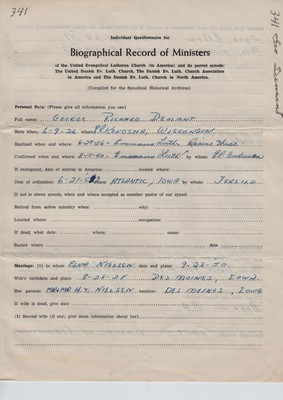 341
341 Geo Desmant
Individual Questionnaire for
Biographical Record of Ministers
of the United Evangelical Lutheran Church (in America) and its parent synods:
The United Danish Ev. Luth. Church, The Danish Ev. Luth. Church Association
in America and The Danish Ev. Luth. Church in North America.
(Compiled for the Synodical Historical Archives)
Personal Data: (Please give all information you can)
Full name: GEORGE RICHARD
Born when: 6-9-26 where: KENOSHA, WISCONSIN
Baptized when and where: 6-27-26 - Emmanuel Luth, Racine Wisc.
Confirmed when and where: Emmanuel Luth by whom:
If immigrated, date of arrival in America: located where:
Date of ordination: 6-21- where: ATLANTIC, IOWA by whom: JERSILD
If not in above synods, when and where accepted as member pastor of our synod:
Retired from active ministry when: why:
Located where: occupation:
If dead, what date: where: cause:
Buried where date
Marriage: (1) to whom EDNA NIELSEN date and place: 9-22-50
Wife's birthdate and place: DES MOINES, IOWA
Her parents: H.T. NIELSEN location: DES MOINES, IOWA
If wife is dead, give date
(2) Second wife (if any; give same information about her).